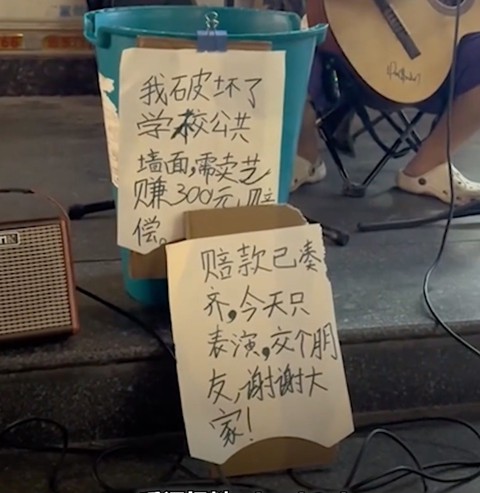 我破坏了
学校公共
墙面,需卖艺
赚300元,赔
偿。
赔款已凑
齐,今天只
表演,交个朋
友,谢谢大
家!